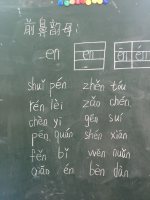 前鼻韵母:
en en ēn én
shuǐ pén zhěn tóu
rén lèi zǎo chén
chèn yī gēn suí
pén quán shén xiān
fěn bǐ wēn nuǎn
gǎn ēn bèn dàn